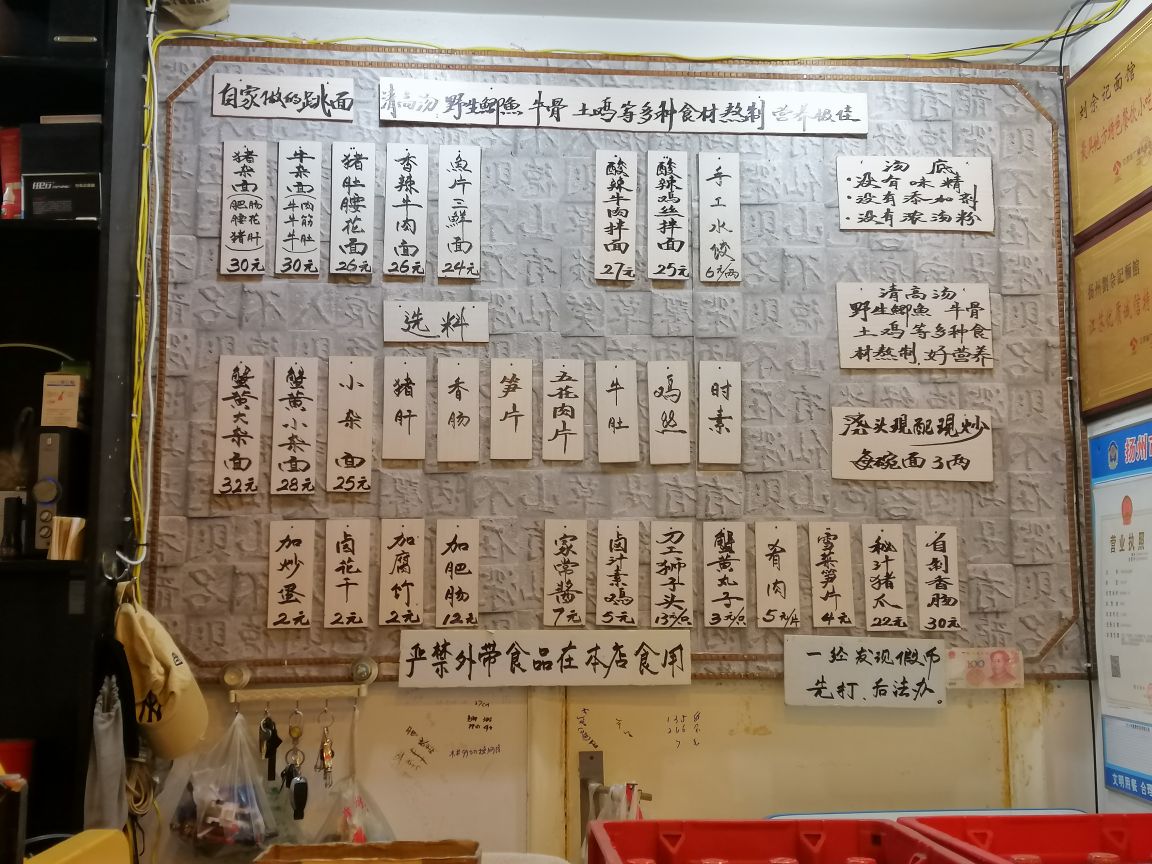 自家做的跳面
清高汤 野生鲫魚 牛骨 土鸡等多种食材熬制 营养极佳
猪杂面
肥肠
腰花
猪肝
30元
牛杂面
牛肉
牛筋
牛肚
30元
猪肚腰花面
26元
香辣牛肉面
26元
魚片三鲜面
24元
酸辣牛肉拌面
27元
酸辣鸡丝拌面
25元
手工水饺
6元/两
汤底
·没有味精
·没有添加剂
·没有浓汤粉
选料
清高汤
野生鲫魚 牛骨
土鸡等多种食
材熬制.好营养
蟹黄大杂面
32元
蟹黄小杂面
28元
小杂面
25元
猪肝
香肠
笋片
五花肉片
牛肚
鸡丝
时素
浇头現配現炒
每碗面3两
加炒蛋
2元
卤花干
2元
加腐竹
2元
加肥肠
12元
家常酱
7元
卤汁素鸡
5元
刀工狮子头
13元/只
蟹黄丸子
3元/只
肴肉
5元/片
雪菜笋片
4元
秘汁猪爪
22元
自制香肠
30元
严禁外带食品在本店食用
一经发现假币
先打.后法办。
100
刘余记面馆
扬州劉余記麵館
扬州
营业执照
文明用餐 合理